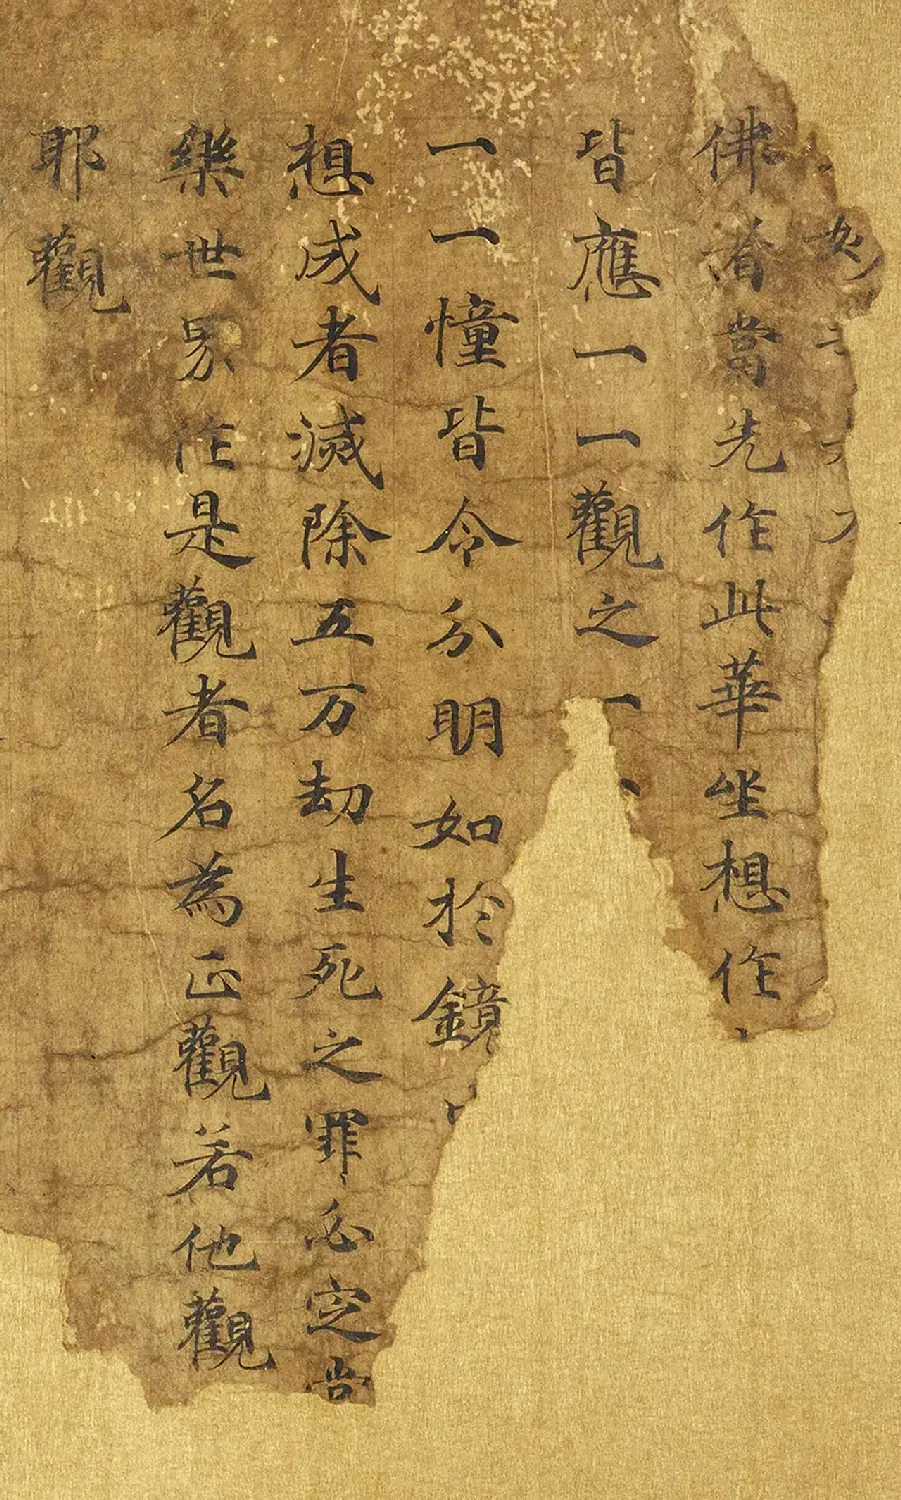 佛者當先作此華坐想作
皆應一一觀之一
一一憧皆令分明如於鏡
想成者滅除五万劫生死之罪必定
樂世界作是觀者名為正觀若他觀
耶觀